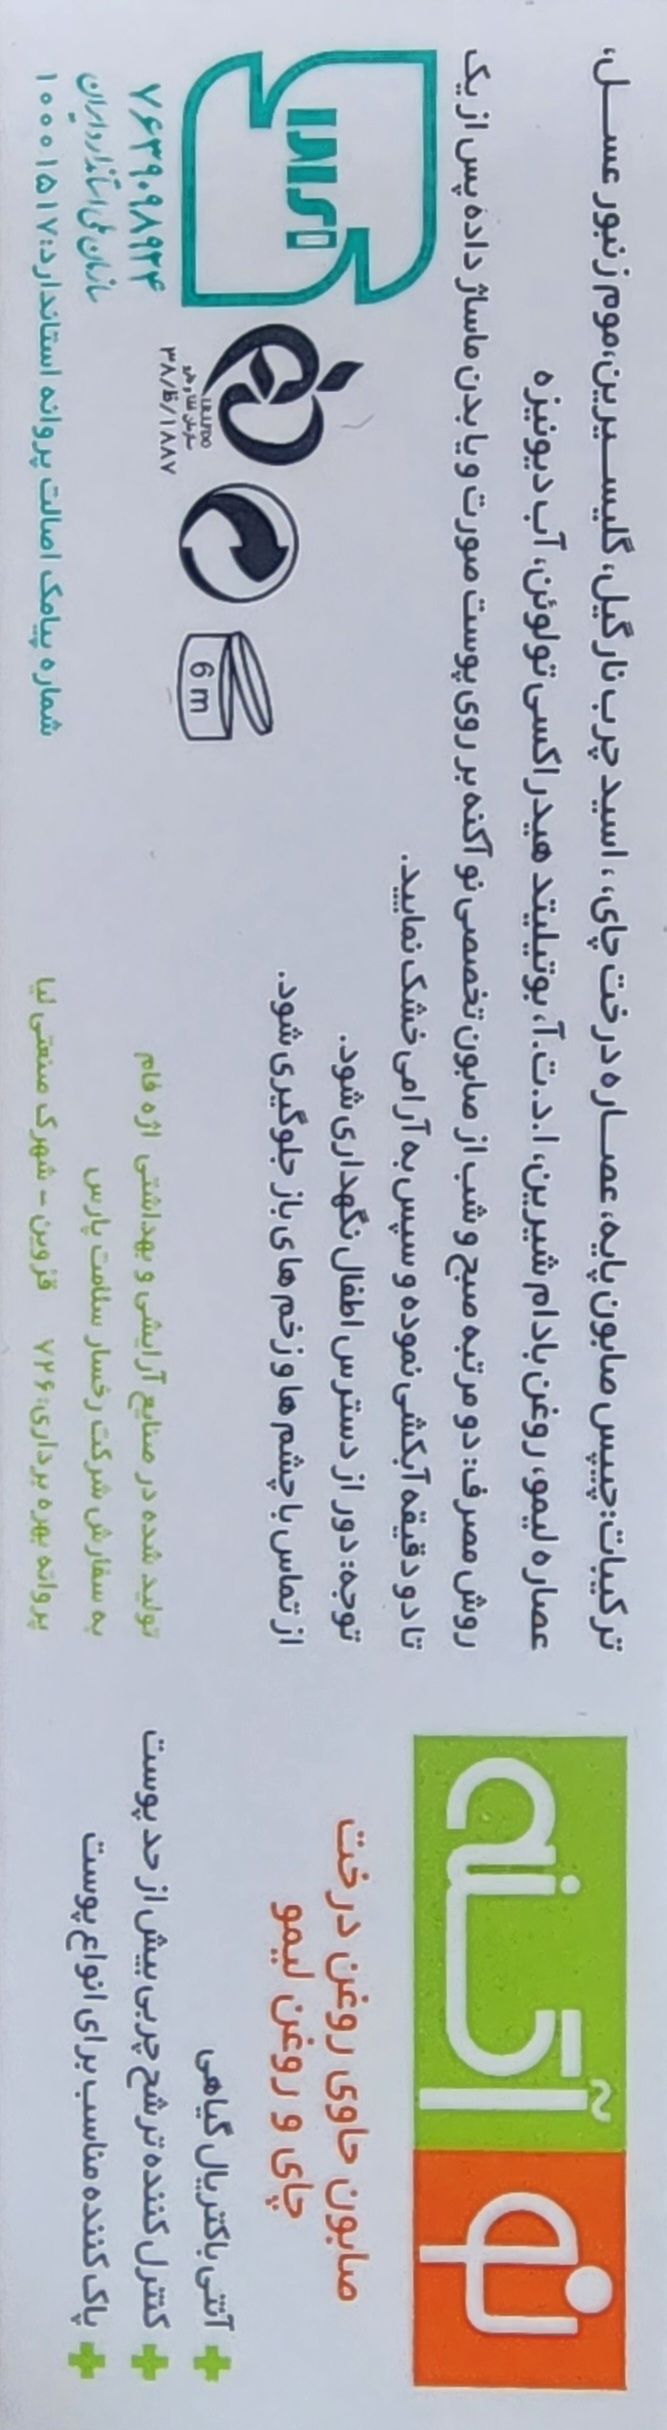 نو آکنه
صابون حاوی روغن درخت
چای و روغن لیمو
آنتی باکتریال گیاهی
کنترل کننده ترشح چربی بیش از حد پوست
پاک کننده مناسب برای انواع پوست
ترکیبات: چیپس صابون پایه، عصاره درخت چای، ، اسید چرب نارگیل، گلیسیرین، موم زنبور عسل،
عصاره لیمو، روغن بادام شیرین، ا.د.ت.آ، بوتیلیتد هیدراکسی تولوئن، آب دیونیزه
روش مصرف: دو مرتبه صبح و شب از صابون تخصصی نو آکنه بر روی پوست صورت و یا بدن ماساژ داده پس از یک
تا دو دقیقه آبکشی نموده و سپس به آرامی خشک نمایید.
توجه: دور از دسترس اطفال نگهداری شود.
از تماس با چشم ها و زخم های باز جلوگیری شود.
تولید شده در صنایع آرایشی و بهداشتی اژه فام
به سفارش شرکت رخسار سلامت پارس
پروانه بهره برداری: ۷۲۶ قزوین - شهرک صنعتی لیا
6 m
سازمان غذا و دارو
۳۸/ظ/۱۸۸۷
۷۶۳۹۰۹۸۹۲۴
سازمان ملی استاندارد ایران
شماره پیامک اصالت پروانه استاندارد: ۱۰۰۰۱۵۱۷